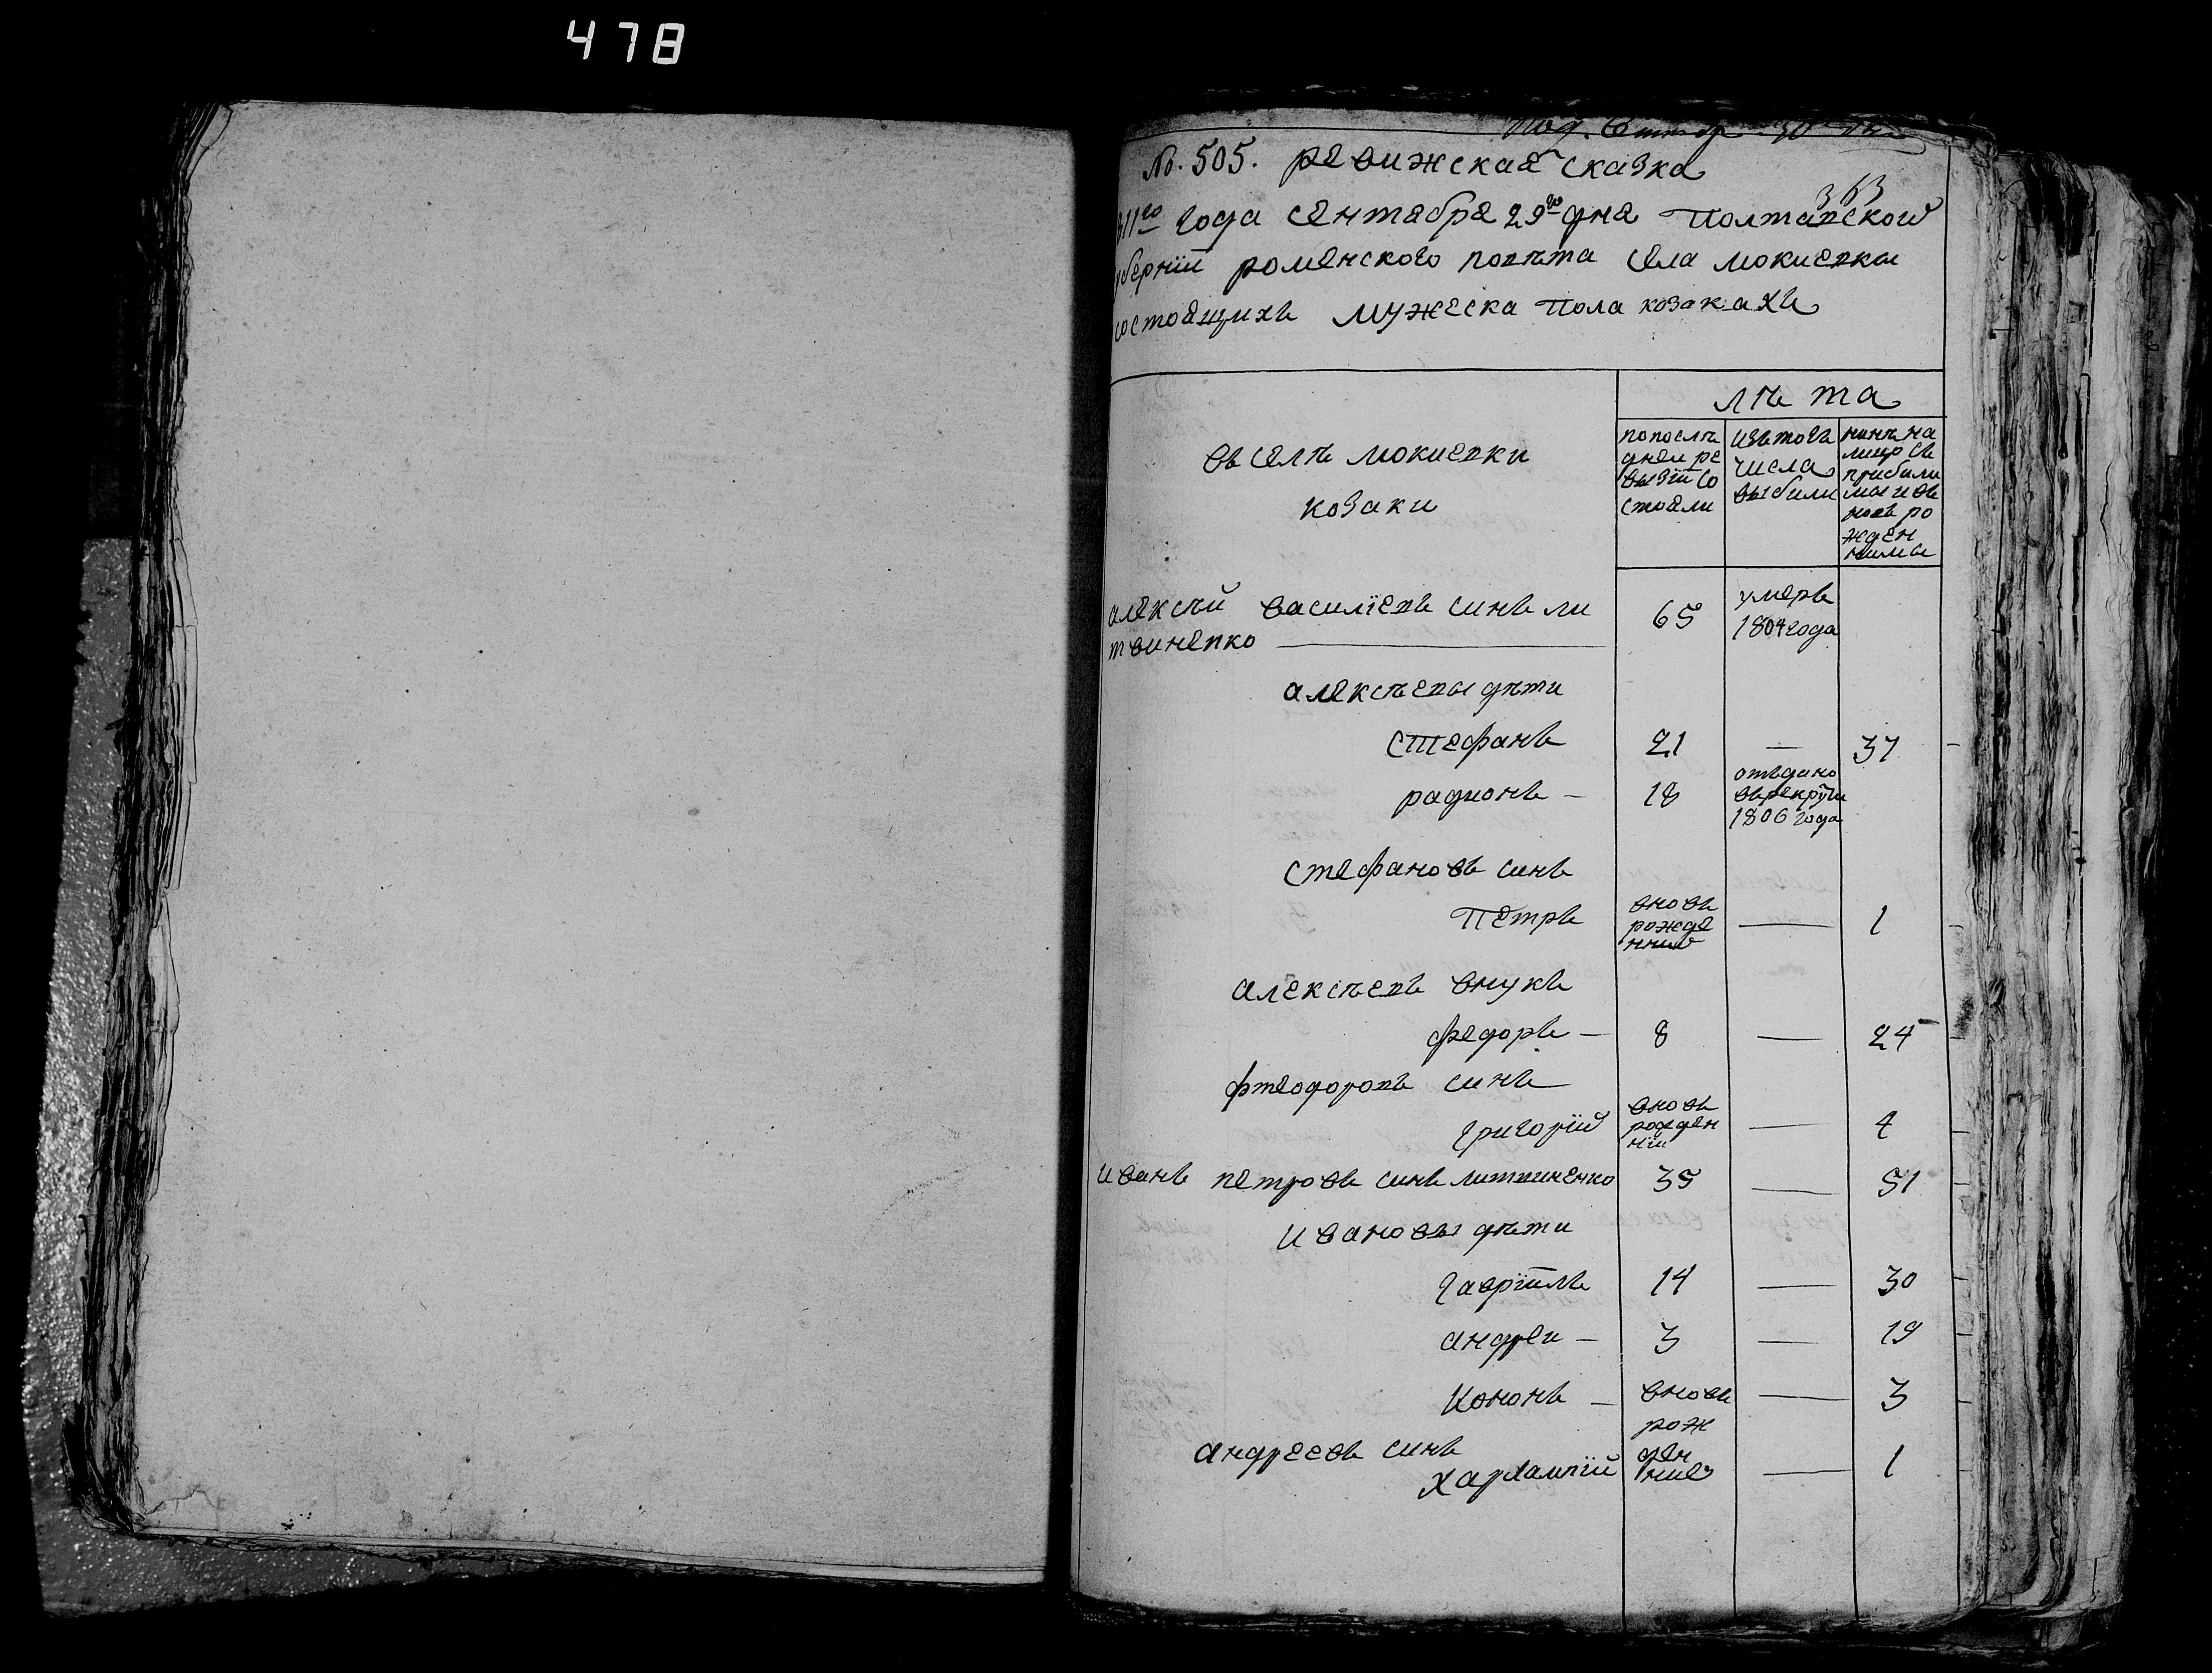 478
№. 505. ревижская сказка
363
811го года сентабря 29го дня полтавской
уберніи роменского повѣта села мокиевки
состоящихъ мужеска пола козакахъ
лѣта
въ селѣ мокиевки
козаки
попослѣ
днеи ре
вызіи со
стояли
изъ тогъ
числа
выбили
нинѣ на
лицо съ
прибили
мы и въ
новъ ро
жден
нимы
алексѣй василіевъ синъ ли
твиненко
65
умеръ
1804 года
алексѣевы дѣти
стефанъ 21 — 37
радионъ — 18
отъдано
въ рекруты
1806 года
стефановъ синъ
петръ
вновь
рожде
нний
— 1
алексѣевъ внукъ
федоръ — 8 — 24
фтеодоровъ синъ
григорій
вновь
рожден
ній
— 4
иванъ петровъ синъ литвиненко 35 — 51
ивановы дѣти
гавріилъ 14 — 30
андреи — 3 — 19
кононъ — вновь — 3
рож
андреевъ синъ
ден
харлампій ний — 1